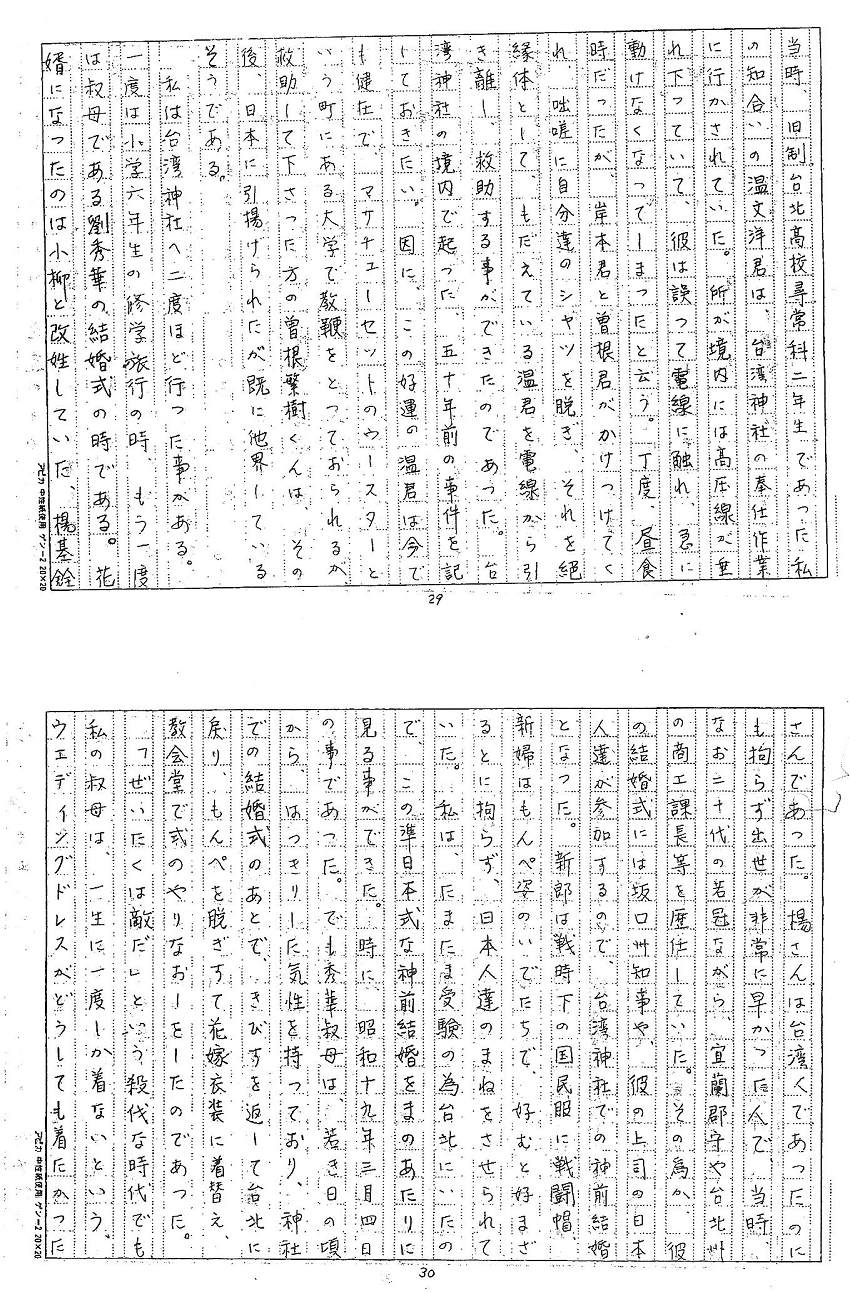 当時、旧制台北高校尋常科二年生であった私
の知合いの温文洋君は、台湾神社の奉仕作業
に行かされていた。所が境内には高圧線が垂
れ下っていて、彼は誤って電線に触れ、急に
動けなくなつてしまつたと云う。丁度、昼食
時だったが、岸本君と曽根君がかけつけてく
れ、咄嗟に自分達のシャツを脱ぎ、それを絶
縁体として、もだえている温君を電線から引
き離し、救助する事ができたのであつた。台
湾神社の境内で起った、五十年前の事件を記
しておきたい。因に、この好運の温君は今で
も健在で、マサチューセットのウースターと
いう町にある大学で教鞭をとっておられるが
救助して下さった方の曽根繁樹くんは、その
後、日本に引揚げられたが既に他界している
そうである。
私は台湾神社へ二度ほど行った事がある。
一度は小学六年生の修学旅行の時、もう一度
は叔母である劉秀華の結婚式の時である。花
婿になつたのは小柳と改姓していた、楊基銓
アピカ 中性紙使用 ゲンー2 20×20
29
さんであった。楊さんは台湾人であったのに
も拘らず出世が非常に早かった人で、当時、
なお二十代の若冠ながら、宜蘭郡守や台北州
の商工課長等を歴任していた。その為か、彼
の結婚式には坂口州知事や、彼の上司の日本
人達が参加するので、台湾神社での神前結婚
となった。新郎は戦時下の国民服に戦闘帽、
新婦はもんペ姿のいでたちで、好むと好まざ
るとに拘らず、日本人達のまねをさせられて
いた。私は、たまたま受験の為台北にいたの
で、この準日本式な神前結婚をまのあたりに
見る事ができた。時に、昭和十九年三月四日
の事であつた。でも秀華叔母は、若き日の頃
から、はつきりした気性を持つており、神社
での結婚式のあとで、きびすを返して台北に
戻り、もんペを脱ぎすて花嫁衣装に着替え、
教会堂で式のやりなおしをしたのであつた。
「ぜいたくは敵だ」という殺伐な時代でも
私の叔母は、一生に一度しか着ないという、
ウエディングドレスがどうしても着たかった
アピカ 中性紙使用 ゲンー2 20×20
30